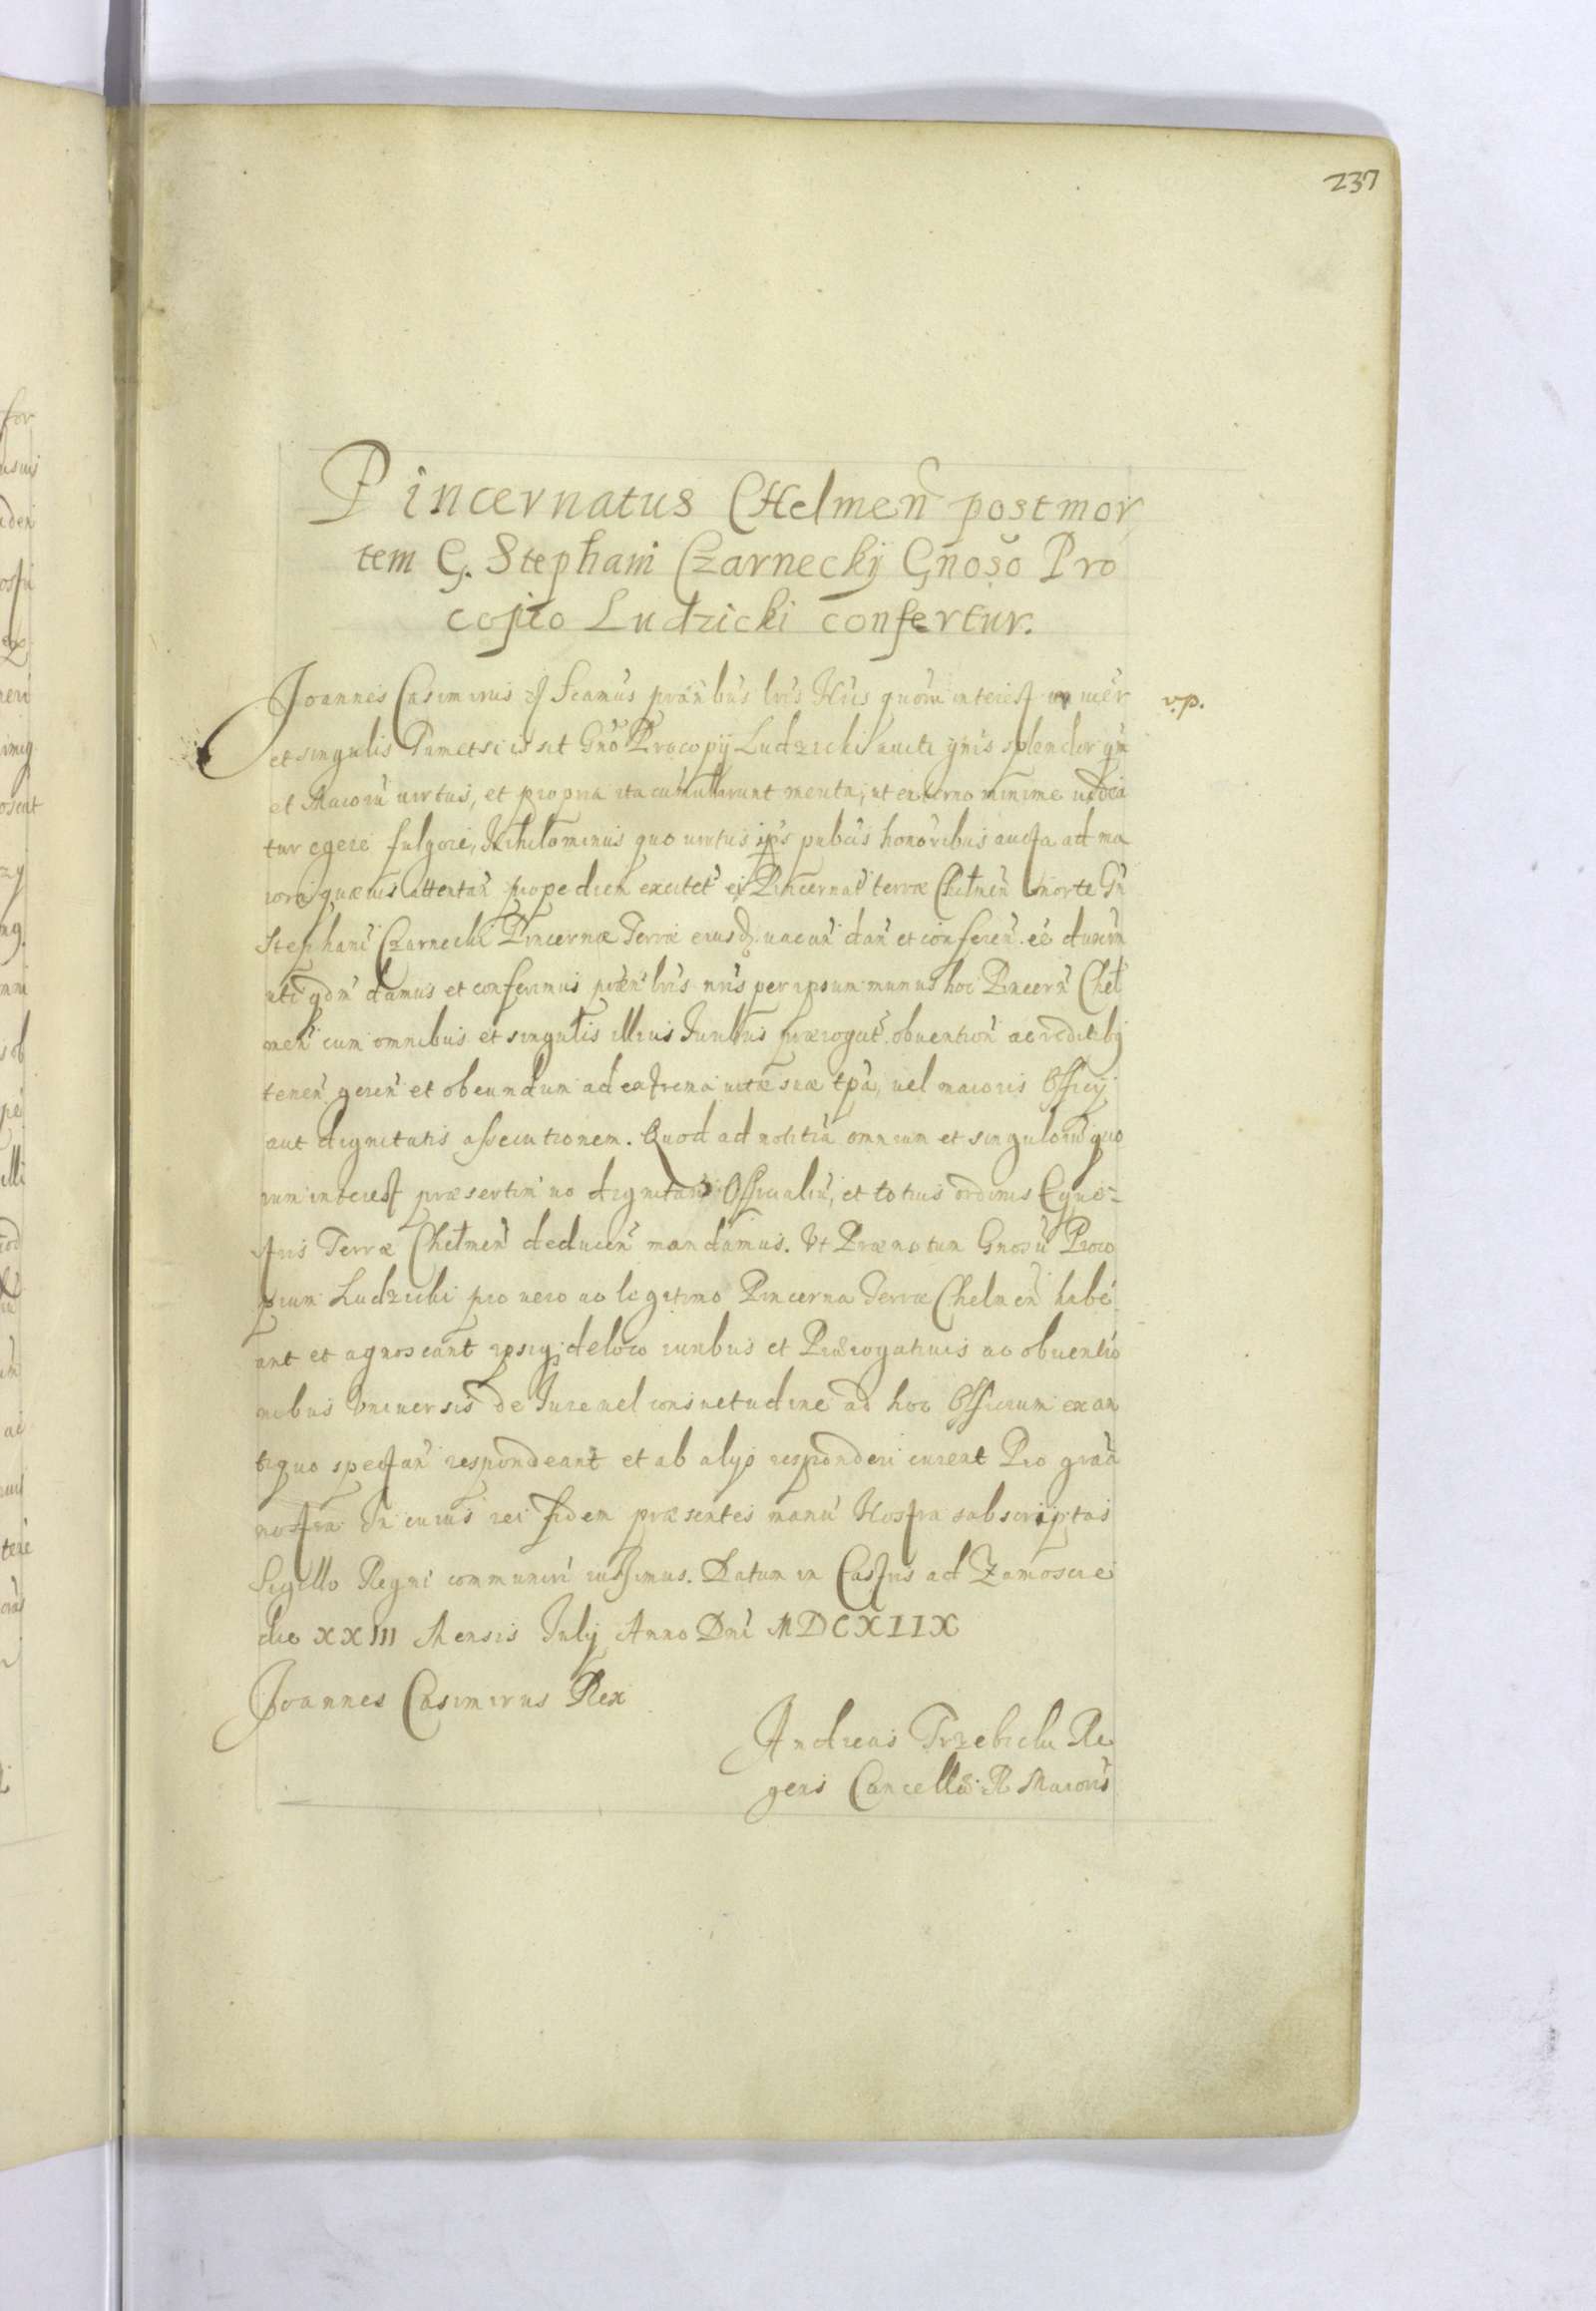 237
Pincernatus CHelmen̄ post mor
tem G. Stephani Czarneckij Gnoso Pro
copio Ludzicki confertur.
Joannes Casimirus Scamus prn̄bus lr̄is Nr̄is quorū interest un̄ uēr
v.p.
et singulis Tametsi is sit Gnō Procopij Ludzicki auiti gn̄is splendor qm̄
et Maiorū uirtus, et propria ita cumularunt merita, ut externo minime uideā
tur egere fulgore, Nihilominus quo uirtus ips pubcis honoribus aucta ad ma
iora quæuis attentan̄ propediem excitet ei Pincernat terræ Chelmen̄ morte Gn̄
Stephani Czarnecki Pincernæ Terræ eiusd uacan̄ dan̄ et conferen̄ eē duxim
uti qdm̄ damus et conferimus prn̄ lr̄is nr̄is per ipsum munus hoc Pincern̄ Chel
men̄ cum omnibus et singulis illius Iuribus prærogat. obuention̄ ac reditibq
tenen̄ geren̄ et obeundum ad extrema uitæ suæ tp̄a, uel maioris Officij
aut dignitatis assecutionem. Quod ad notitiā omnium et singulorū quo
rum interest præsertim uo dignitar Officialiū, et totius ordinis Eques-
tris Terræ Chelmen̄ deducen̄ mandamus. Vt Prænotum Gnosū Proco
pium Ludzicki pro uero ac legitimo Pincerna Terræ Chelmen̄ habe
ant et agnoscant ipsiq; de loco iuribus et Prærogatiuis ac obuentio
nibus Vniuersis de Iure uel consuetudine ad hoc Officium ex an
tiquo spectan̄ respondeant et ab alijs responderi curent Pro gratia
nostra In cuius rei fidem præsentes manu Nostra subscriptas
Sigillo Regni communiri iussimus. Datum in Castris ad Zamoscie
die XXIII Mensis Iulij Anno Dni MDCXIIX
Joannes Casimirus Rex
Andreas Trzebicki Re
gens Cancellæ R Maioris